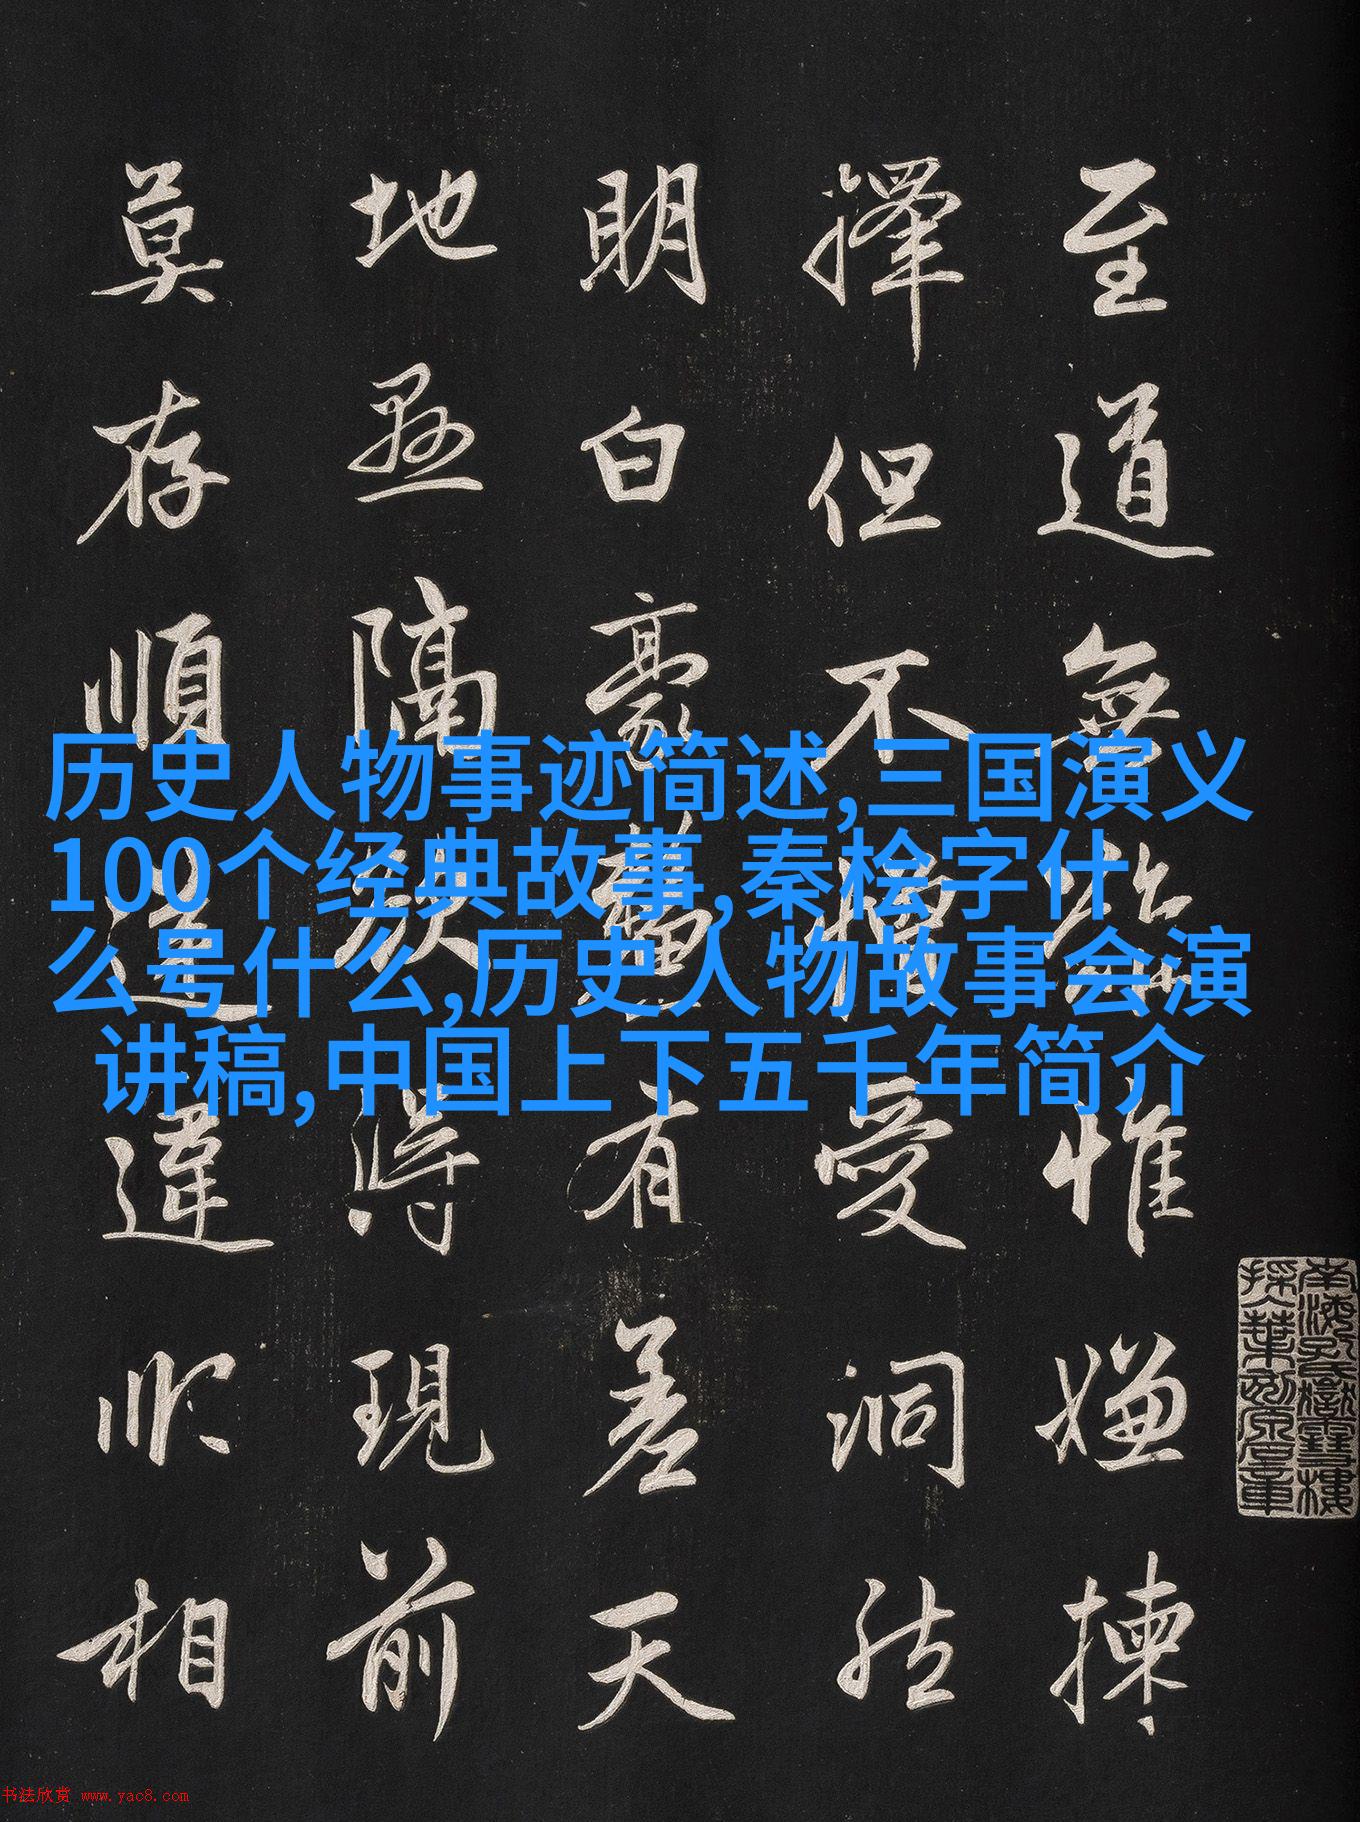 至道無難惟嫌揀
擇但不憎愛洞然
明白豪釐有差天
地懸隔欲得現前
莫存順逆違順相
历史人物事迹简述,三国演义
100个经典故事,秦桧字什
么号什么,历史人物故事会演
讲稿,中国上下五千年简介
南海孔氏嶽雪樓
书法欣赏 www.yac8.com